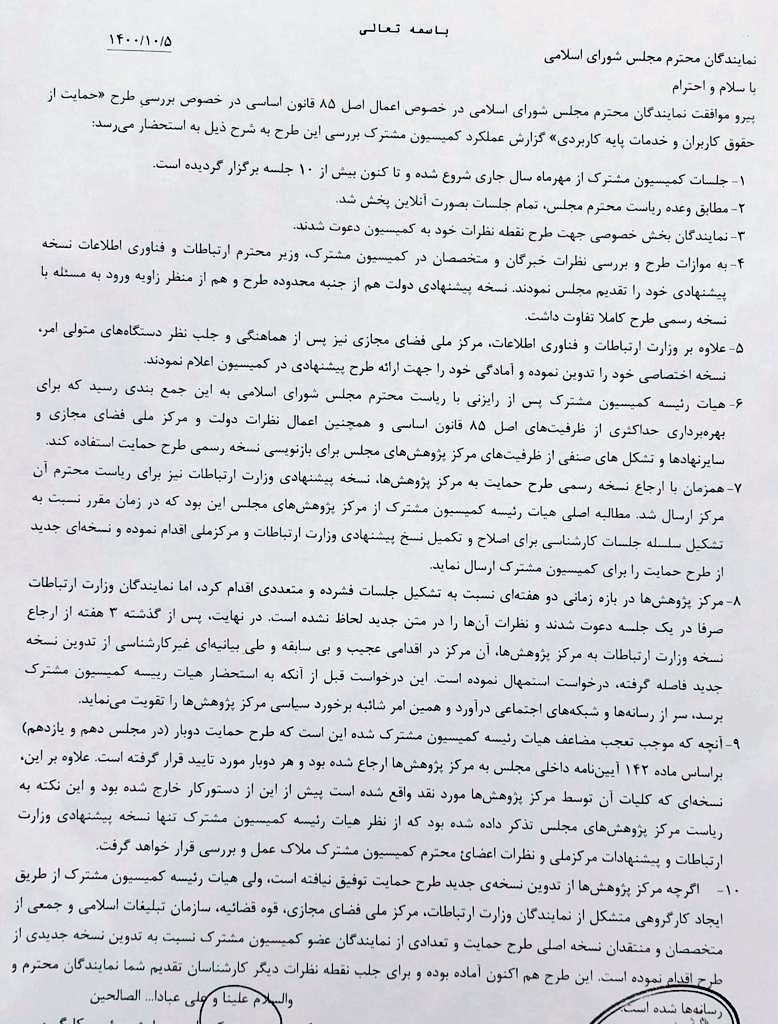 باسمه تعالی
۱۴۰۰/۱۰/۵
نمایندگان محترم مجلس شورای اسلامی
با سلام و احترام
پیرو موافقت نمایندگان محترم مجلس شورای اسلامی در خصوص اعمال اصل ۸۵ قانون اساسی در خصوص بررسی طرح «حمایت از
حقوق کاربران و خدمات پایه کاربردی» گزارش عملکرد کمیسیون مشترک بررسی این طرح به شرح ذیل به استحضار می‌رسد:
۱- جلسات کمیسیون مشترک از مهرماه سال جاری شروع شده و تا کنون بیش از ۱۰ جلسه برگزار گردیده است.
۲- مطابق وعده ریاست محترم مجلس، تمام جلسات بصورت آنلاین پخش شد.
۳- نمایندگان بخش خصوصی جهت طرح نقطه نظرات خود به کمیسیون دعوت شدند.
۴- به موازات طرح و بررسی نظرات خبرگان و متخصصان در کمیسیون مشترک، وزیر محترم ارتباطات و فناوری اطلاعات نسخه
پیشنهادی خود را تقدیم مجلس نمودند. نسخه پیشنهادی دولت هم از جنبه محدوده طرح و هم از منظر زاویه ورود به مسئله با
نسخه رسمی طرح کاملا تفاوت داشت.
۵- علاوه بر وزارت ارتباطات و فناوری اطلاعات، مرکز ملی فضای مجازی نیز پس از هماهنگی و جلب نظر دستگاه‌های متولی امر،
نسخه اختصاصی خود را تدوین نموده و آمادگی خود را جهت ارائه طرح پیشنهادی در کمیسیون اعلام نمودند.
۶- هیات رئیسه کمیسیون مشترک پس از رایزنی با ریاست محترم مجلس شورای اسلامی به این جمع بندی رسید که برای
بهره‌برداری حداکثری از ظرفیت‌های اصل ۸۵ قانون اساسی و همچنین اعمال نظرات دولت و مرکز ملی فضای مجازی و
سایرنهادها و تشکل های صنفی از ظرفیت‌های مرکز پژوهش‌های مجلس برای بازنویسی نسخه رسمی طرح حمایت استفاده کند.
۷- همزمان با ارجاع نسخه رسمی طرح حمایت به مرکز پژوهش‌ها، نسخه پیشنهادی وزارت ارتباطات نیز برای ریاست محترم آن
مرکز ارسال شد. مطالبه اصلی هیات رئیسه کمیسیون مشترک از مرکز پژوهش‌های مجلس این بود که در زمان مقرر نسبت به
تشکیل سلسله جلسات کارشناسی برای اصلاح و تکمیل نسخ پیشنهادی وزارت ارتباطات و مرکزملی اقدام نموده و نسخه‌ای جدید
از طرح حمایت را برای کمیسیون مشترک ارسال نماید.
۸- مرکز پژوهش‌ها در بازه زمانی دو هفته‌ای نسبت به تشکیل جلسات فشرده و متعددی اقدام کرد، اما نمایندگان وزارت ارتباطات
صرفا در یک جلسه دعوت شدند و نظرات آن‌ها را در متن جدید لحاظ نشده است. در نهایت، پس از گذشته ۳ هفته از ارجاع
نسخه وزارت ارتباطات به مرکز پژوهش‌ها، آن مرکز در اقدامی عجیب و بی سابقه و طی بیانیه‌ای غیرکارشناسی از تدوین نسخه
جدید فاصله گرفته، درخواست استمهال نموده است. این درخواست قبل از آنکه به استحضار هیات رییسه کمیسیون مشترک
برسد، سر از رسانه‌ها و شبکه‌های اجتماعی درآورد و همین امر شائبه برخورد سیاسی مرکز پژوهش‌ها را تقویت می‌نماید.
۹- آنچه که موجب تعجب مضاعف هیات رئیسه کمیسیون مشترک شده این است که طرح حمایت دوبار (در مجلس دهم و یازدهم)
براساس ماده ۱۴۲ آیین‌نامه داخلی مجلس به مرکز پژوهش‌ها ارجاع شده بود و هر دوبار مورد تایید قرار گرفته است. علاوه بر این،
نسخه‌ای که کلیات آن توسط مرکز پژوهش‌ها مورد نقد واقع شده است پیش از این از دستورکار خارج شده بود و این نکته به
ریاست مرکز پژوهش‌های مجلس تذکر داده شده بود که از نظر هیات رئیسه کمیسیون مشترک تنها نسخه پیشنهادی وزارت
ارتباطات و پیشنهادات مرکزملی و نظرات اعضائ محترم کمیسیون مشترک ملاک عمل و بررسی قرار خواهد گرفت.
۱۰- اگرچه مرکز پژوهش‌ها از تدوین نسخه‌ی جدید طرح حمایت توفیق نیافته است، ولی هیات رئیسه کمیسیون مشترک از طریق
ایجاد کارگروهی متشکل از نمایندگان وزارت ارتباطات، مرکز ملی فضای مجازی، قوه قضائیه، سازمان تبلیغات اسلامی و جمعی از
متخصصان و منتقدان نسخه اصلی طرح حمایت و تعدادی از نمایندگان عضو کمیسیون مشترک نسبت به تدوین نسخه جدیدی از
طرح اقدام نموده است. این طرح هم اکنون آماده بوده و برای جلب نقطه نظرات دیگر کارشناسان تقدیم شما نمایندگان محترم و
رسانه‌ها شده است.
والسلام علینا و علی عبادا... الصالحین